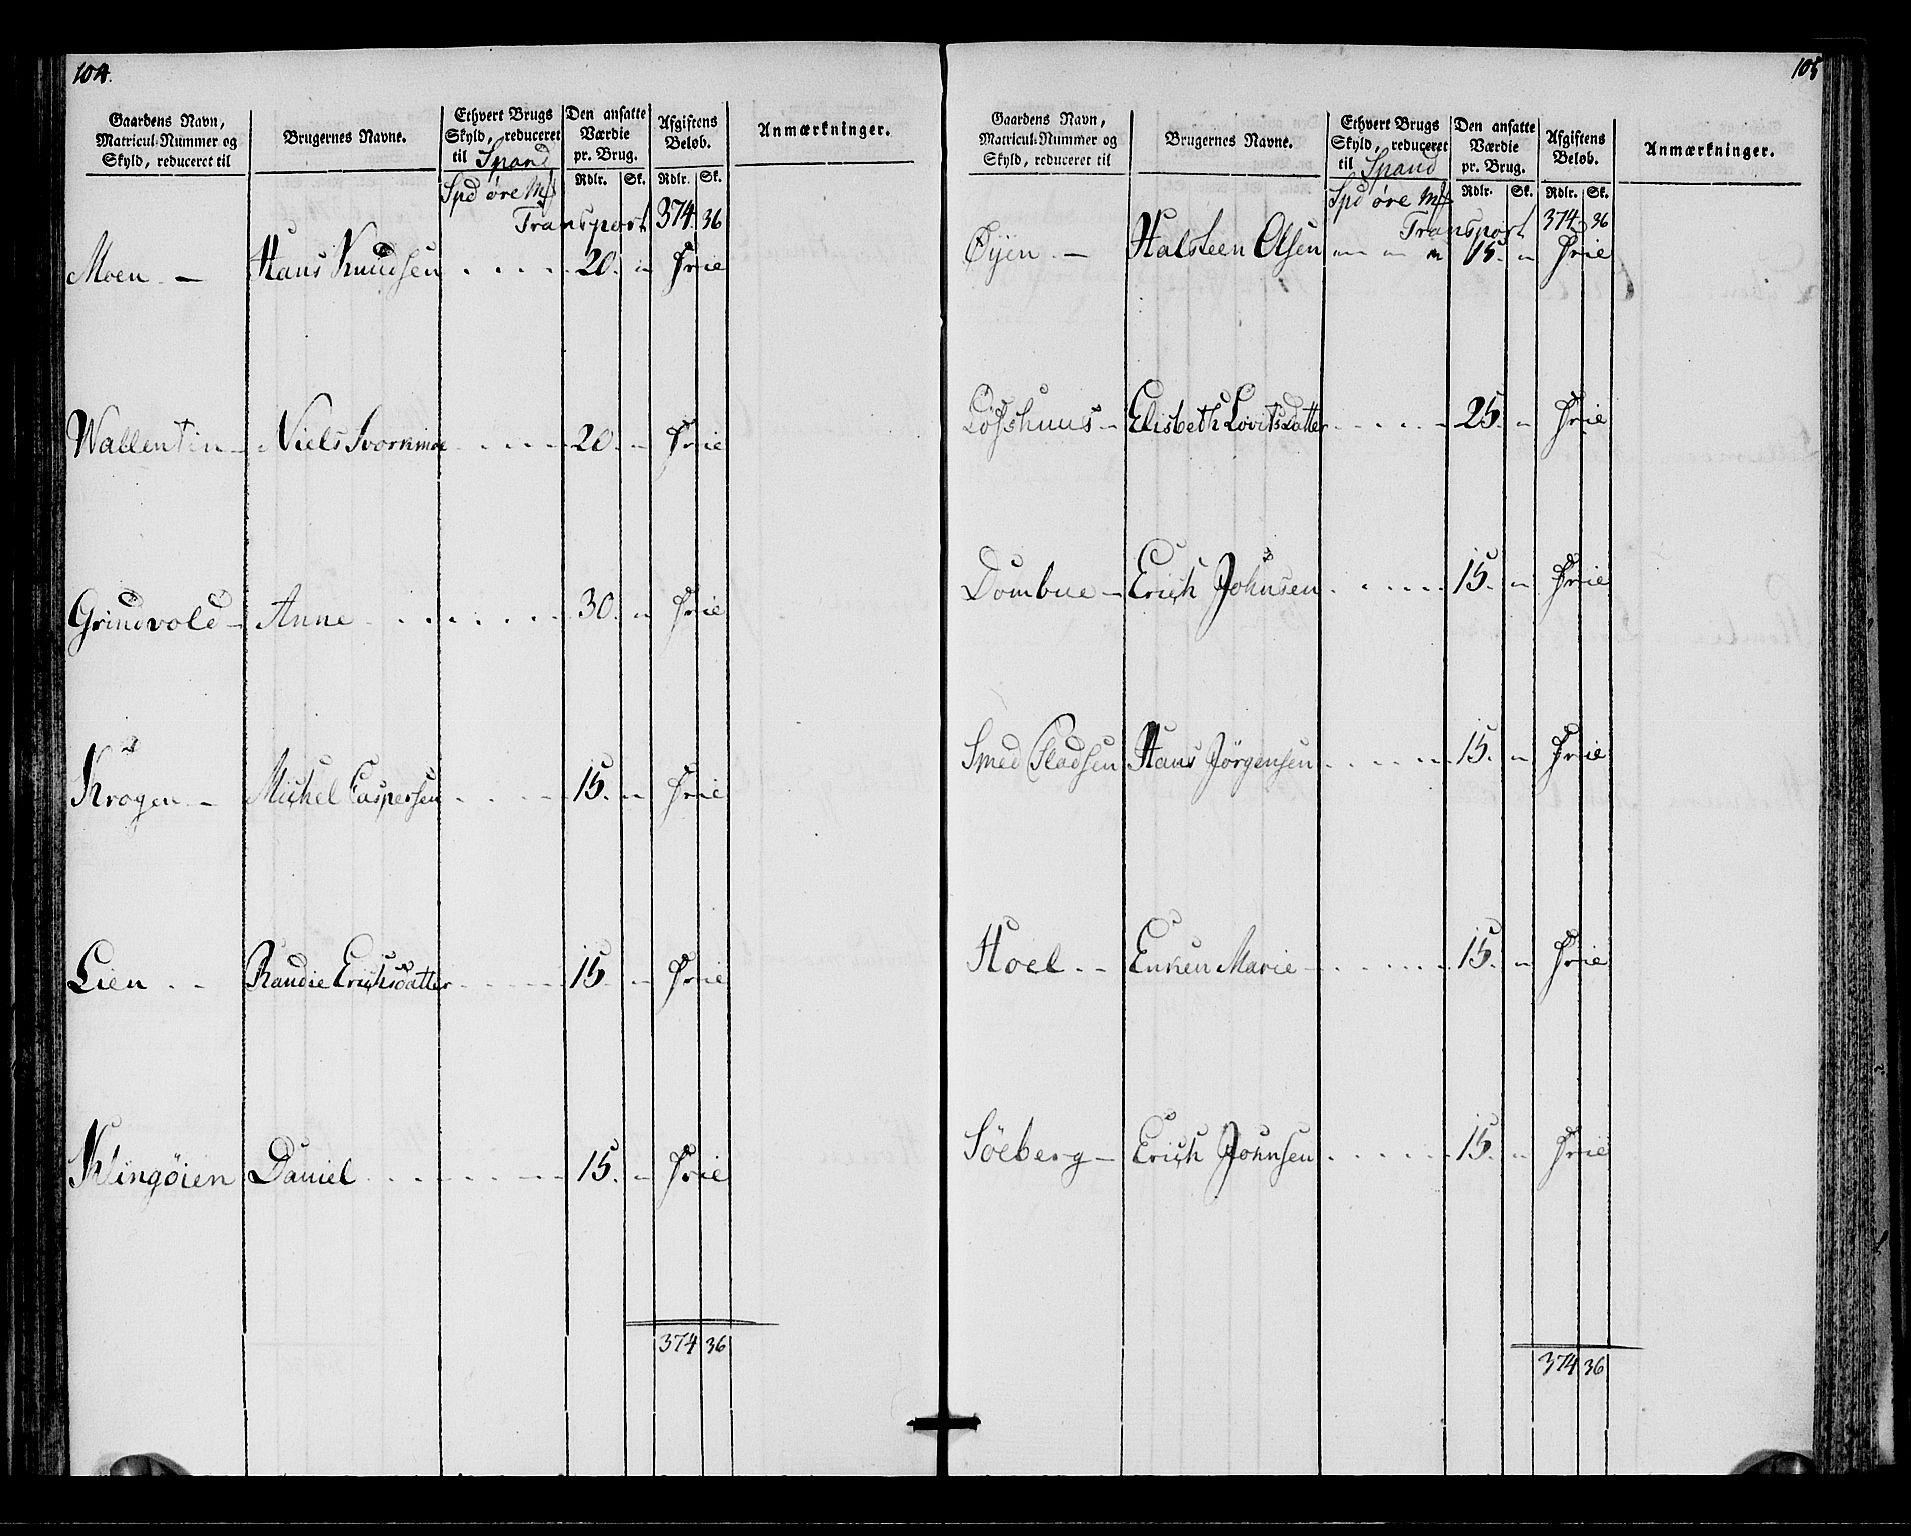 104.
Gaardens Navn, Matricul-Nummer og Skyld, reduceret til
Brugernes Navne.
Ethvert Brugs Skyld, reduceret til Spand
Den ansatte Værdie pr. Brug.
Afgiftens Beløb.
Anmærkninger.
Spd øre Mſ Rdlr. Sk. Rdlr. Sk.
Transport 374 36
Moen - Hans Knudsen 20. Frie
Wallentin - Niels Svorkmoe 20. Frie
Grindvold - Anne 30. Frie
Krogen - Michel Caspersen 15. Frie
Lien - Randie Erichsdatter 15. Frie
Klingøien Daniel 15. Frie
374 36
105
Gaardens Navn, Matricul-Nummer og Skyld, reduceret til
Brugernes Navne.
Ethvert Brugs Skyld, reduceret til Spand
Den ansatte Værdie pr. Brug.
Afgiftens Beløb.
Anmærkninger.
Spd øre Mſ Rdlr. Sk. Rdlr. Sk.
Transport 374 36
Øyen - Halsteen Olsen 15. Frie
Elisbeth Lovitsdatter 25. Frie
Dombue - Erich Johnsen 15. Frie
Smed Pladsen Hans Jörgensen 15. Frie
Hoel - Enken Marie 15. Frie
Söeberg - Erich Johnsen 15. Frie
374 36